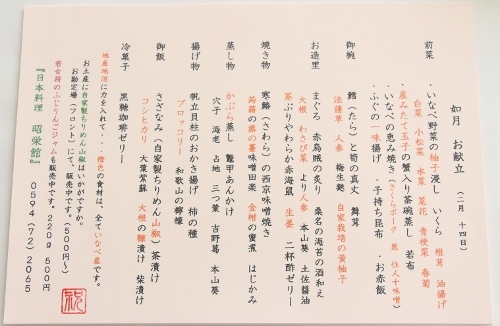 如月 お献立 (二月 十四日)
前菜
・いなべ野菜の柚子浸し いくら 椎茸 油揚げ
白菜 小松菜 水菜 菜花 青梗菜 春菊
・産みたて玉子の蟹入り茶碗蒸し 若布
・いなべの恵み焼き(さくらポーク 葱 住人十味噌)
・ふぐの一味揚げ ・子持ち昆布 ・お赤飯
御椀
鱈(たら)と筍の真丈 舞茸
法蓮草 人参 梅生麩 自家栽培の黄柚子
お造里
まぐろ 赤烏賊の炙り 桑名の海苔の酒和え
大根 わさび菜 より人参 本山葵 土佐醤油
茶ぶりやわらか赤海鼠 生姜 二杯酢ゼリー
焼き物
寒鰆(さわら)の西京味噌焼き
蒟蒻の蕗の薹味噌田楽 金柑の蜜煮 はじかみ
蒸し物
かぶら蒸し 鼈甲あんかけ
穴子 海老 占地 三つ葉 吉野葛 本山葵
揚げ物
帆立貝柱のおかき揚げ 柿の種
ブロッコリー 和歌山の檸檬
御飯
さざなみ(自家製ちりめん山椒)茶漬け
コシヒカリ 大葉紫蘇 大根の糠漬け 柴漬け
冷菓子
黒糖珈琲ゼリー
地産地消に力を入れて・・橙色の食材は、全ていなべ産です。
お土産に自家製ちりめん山椒はいかがですか。
お勘定場(フロント)にて、販売中です。(500円~)
若女将のふじりんごジャムも販売中です。220g 500円
『日本料理 昭栄館』 0594(72)2065
祝